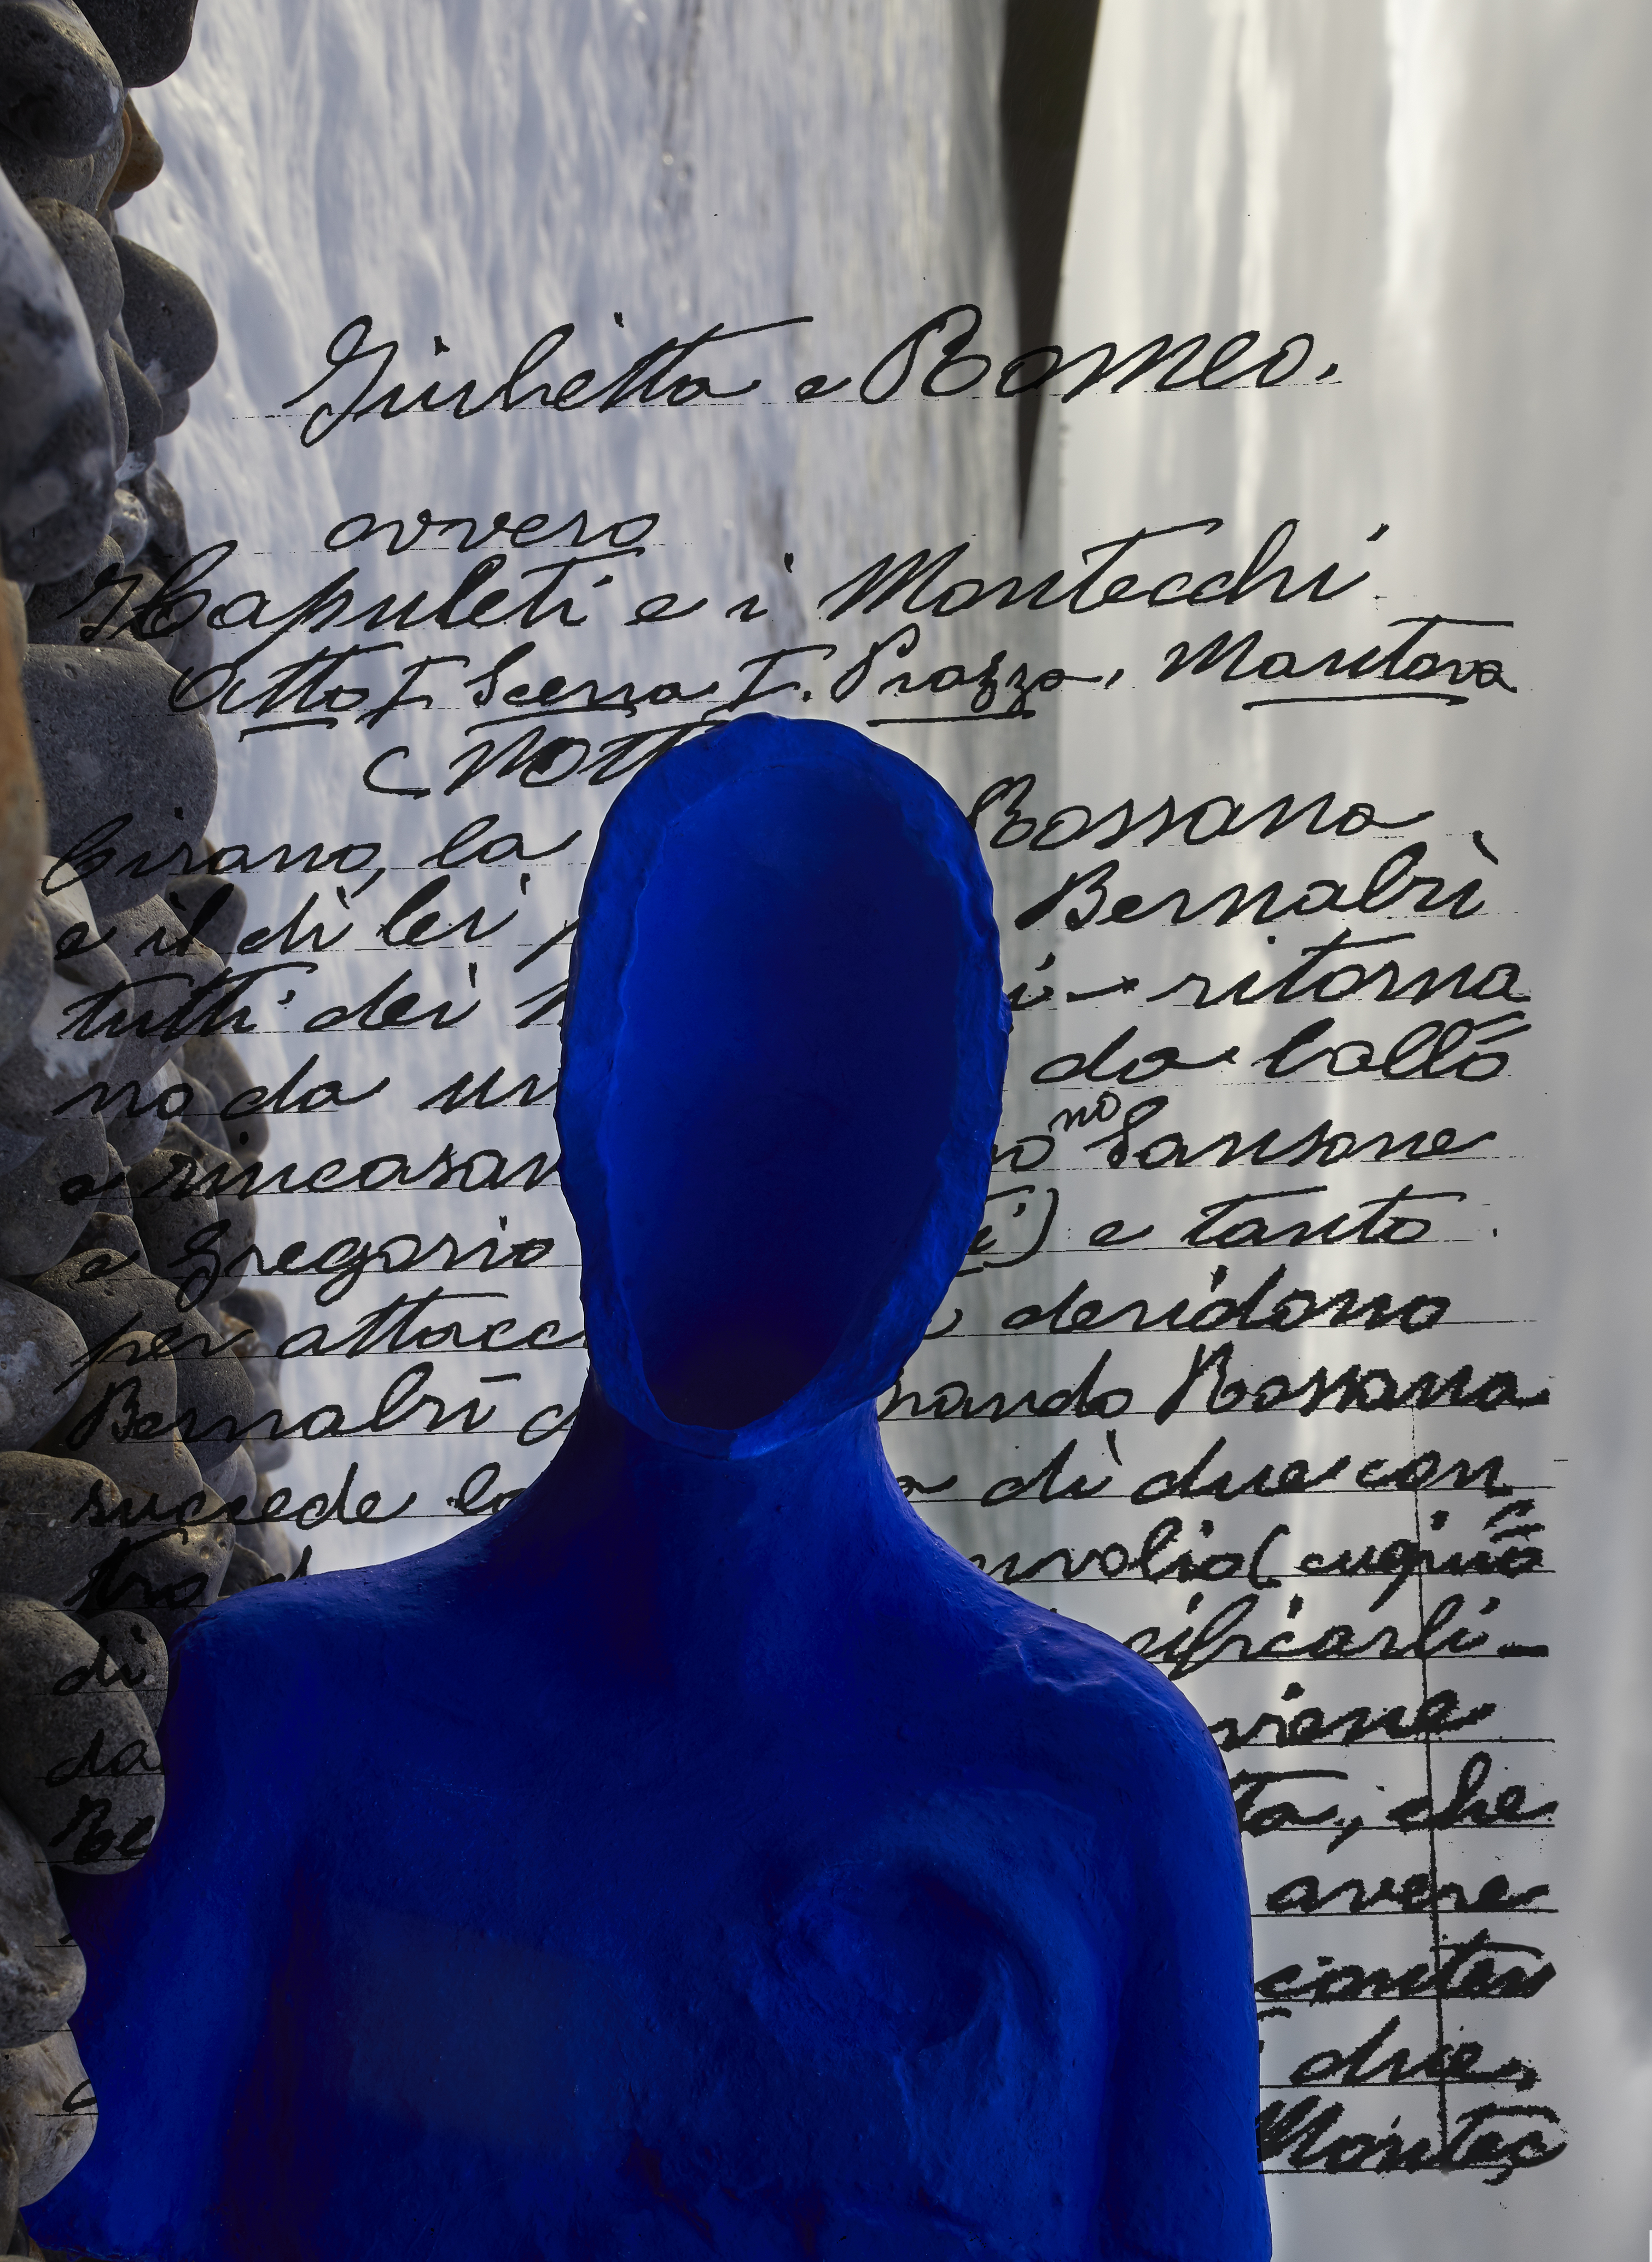 Giulietta e Romeo.
ovvero
I Capuleti e i Montecchi
Atto I Scena I. Piazza, Mantova
( Nott
Cirano, la Rossana
e il di lei Bernabrì
tutti dei ritorna
no da un da ballo
e rincasan no Sansone
e Gregorio i) e tanto
per attacc deridono
Bernabrì rando Rossana
succede la di due con
tro d nvolio ( cugino
di cificarli-
da viene
Be ta, che
avere
conten
due,
Montec